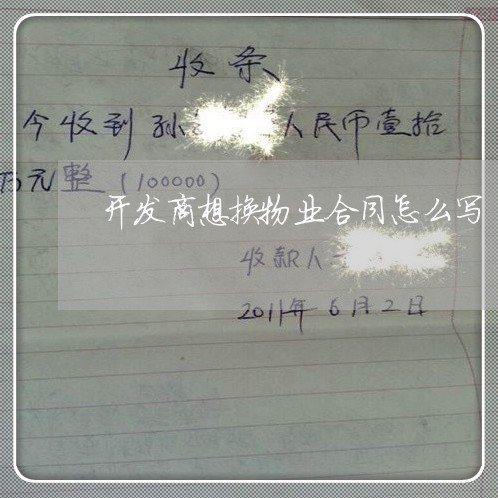 收条
今收到孙 人民币壹拾
万元整（100000）
开发商想换物业合同怎么写
收款人
2011年6月2日